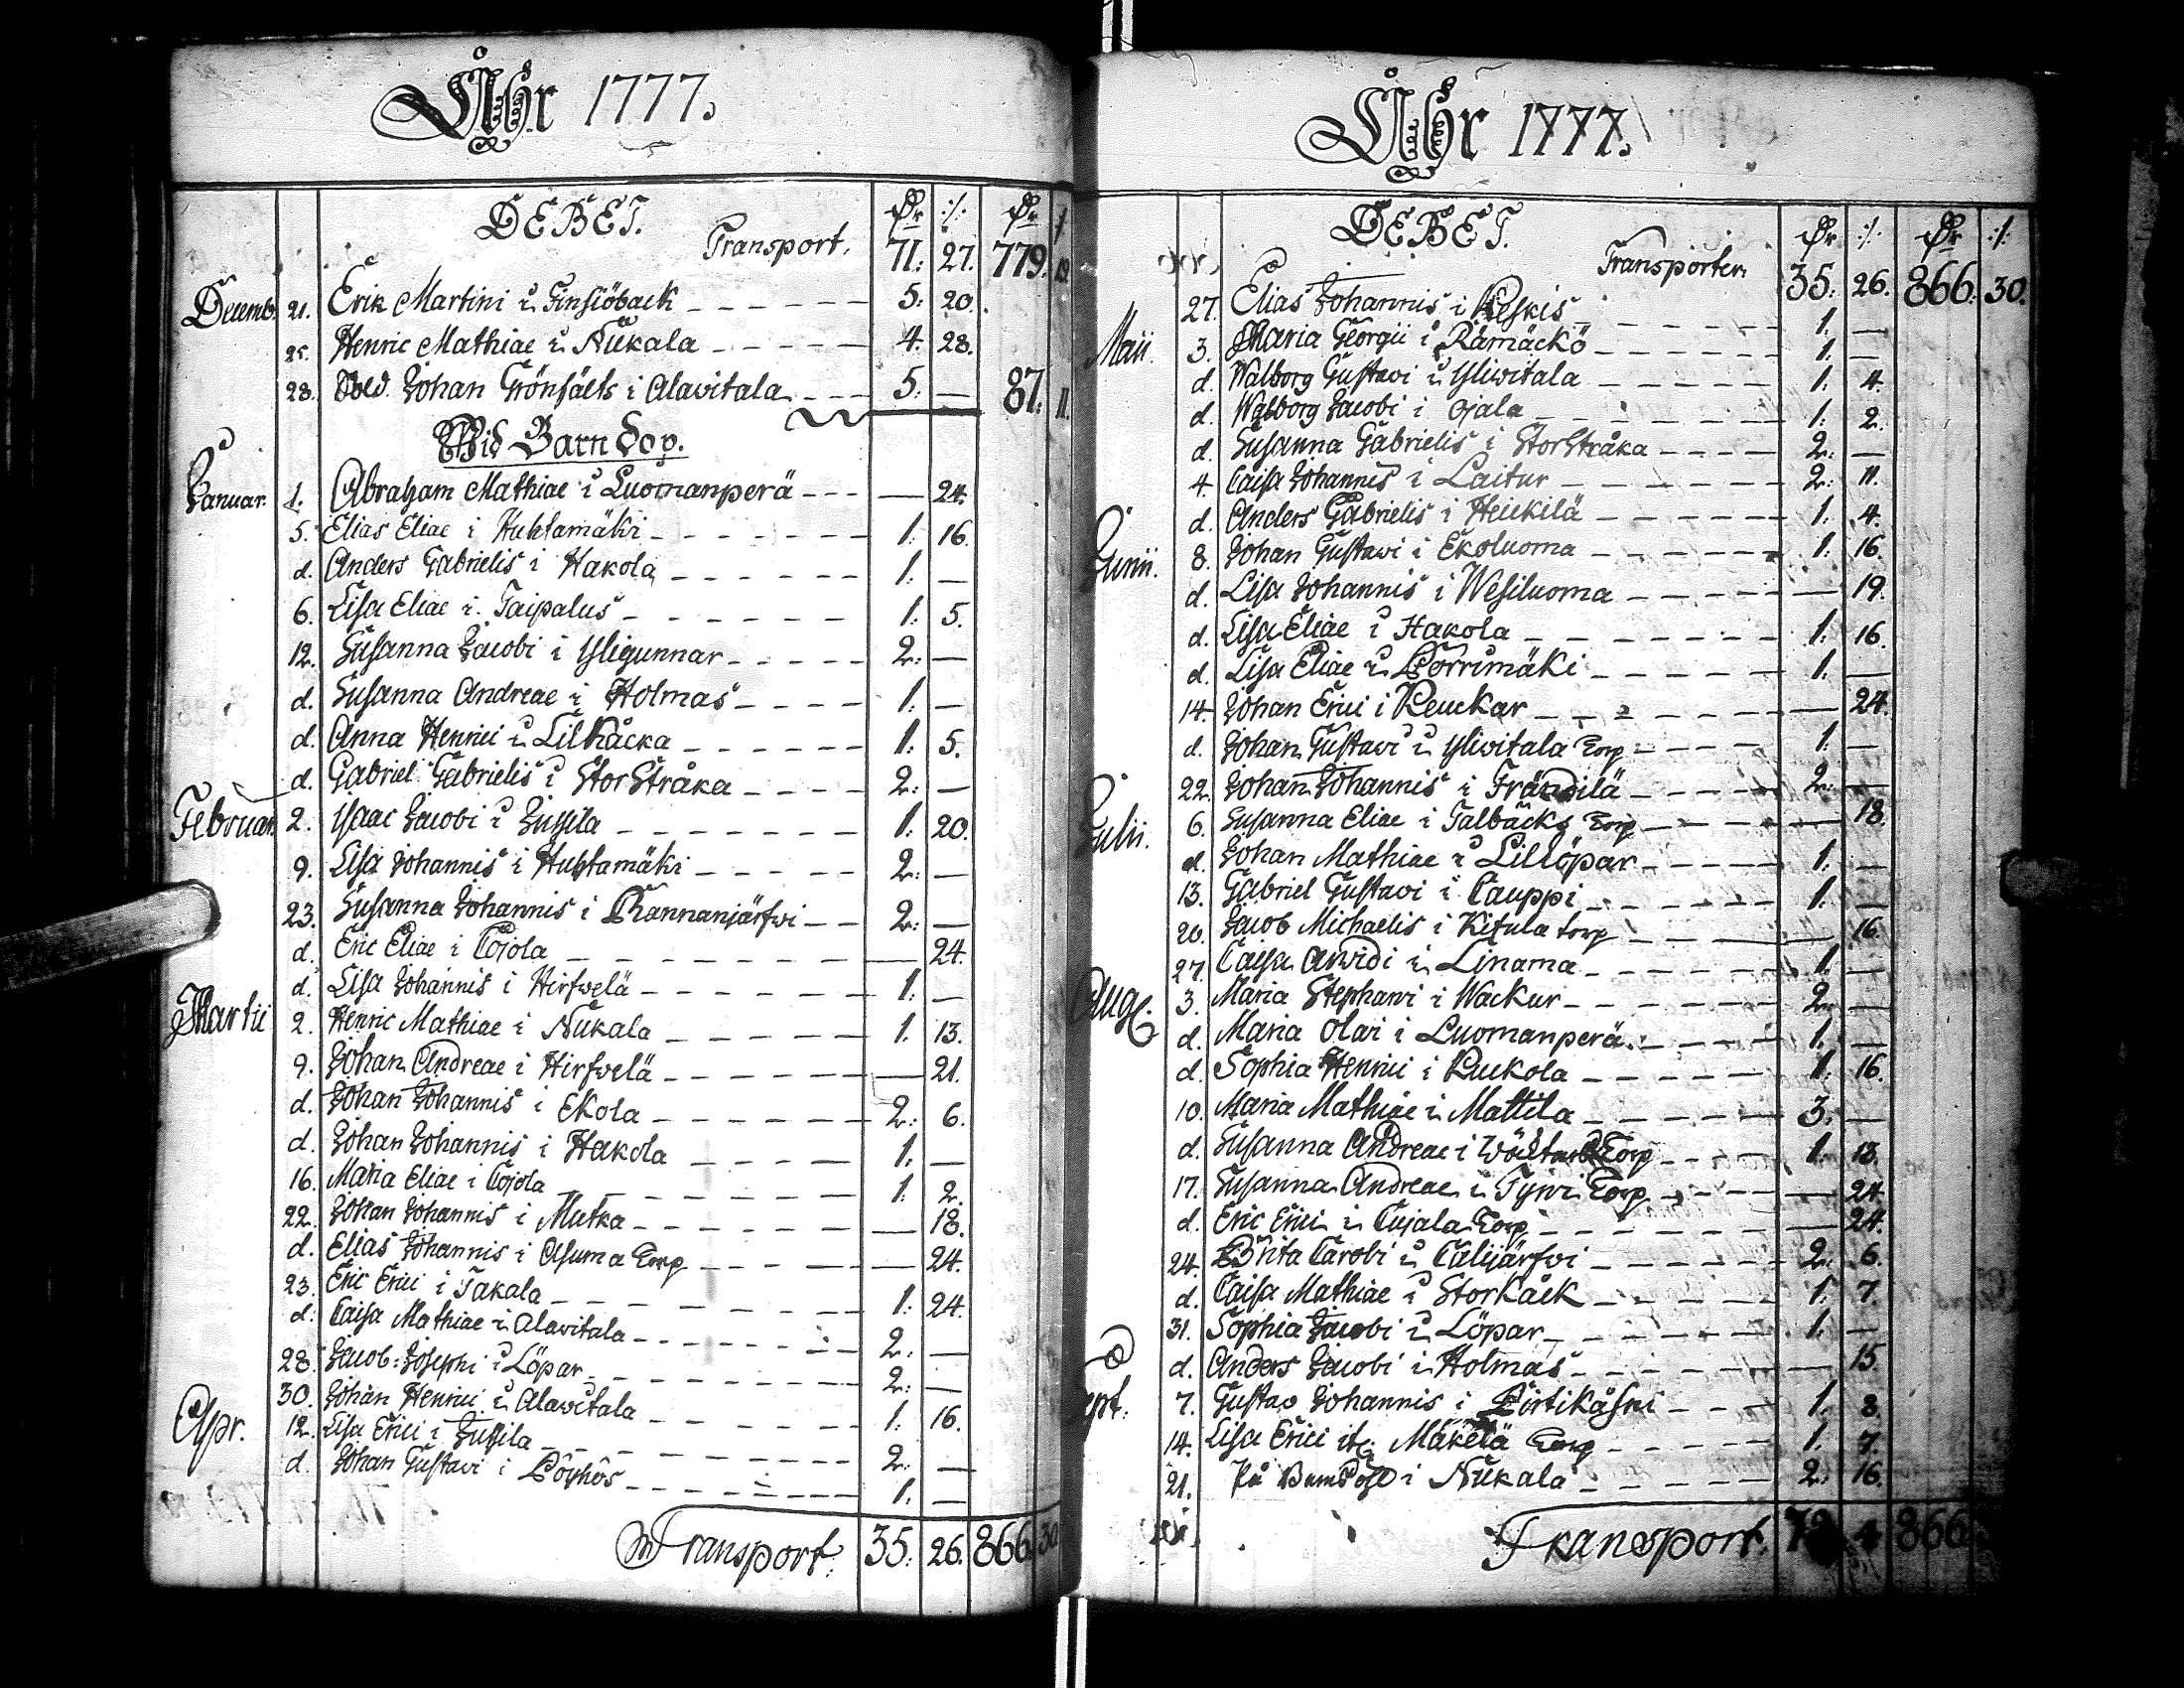 Åhr 1777.
DEBET.
Transport. 71: 27. 779. 19
Decemb. 21. Erik Martini i Finsiöback 5: 20.
25. Henric Mathiae i Nükala 4. 28.
28. Sold Johan Grönfälts i Alavitala 5: — 87. 11.
Wid Barndop.
Januar. 1. Abraham Mathiae i Luomanperä — 24.
5. Elias Eliae i Huhtamäki 1: 16.
d. Anders Gabrielis i Hakola 1: —
6. Lisa Eliae i Taipalus 1: 5.
12. Susanna Jacobi i Yligunnar 2: —
d. Susanna Andreae i Holmas 1: —
d. Anna Henrici i Lilkåcka 1: 5.
d. Gabriel Gabrielis i StorStråka 2: —
Februar. 2. Isaac Jacobi i Jussila 1: 20.
9. Lisa Johannis i Huhtamäki 2: —
23. Susanna Johannis i Rannanjärfwi 2: —
d. Eric Eliae i Cojola — 24.
d. Lisa Johannis i Hirfwelä 1: —
Martii 2. Henric Mathiae i Nükala 1. 13.
9. Johan Andreae i Hirfwelä — 21.
d. Johan Johannis i Ekola 2: 6.
d. Johan Johannis i Hakola 1: —
16. Maria Eliae i Cojola 1: 2.
22. Johan Johannis i Mutka — 18.
d. Elias Johannis i Asuma Torp — 24.
23. Eric Erici i Takala 1: 24.
d: Caisa Mathiae i Alavitala 2: —
28. Jacob: Josephi i Löpar 2: —
30. Johan Henrici i Alavitala 1: 16.
Apr. 12. Lisa Erici i Jussila 2: —
d. Johan Gustavi i Pöyhös 1: —
Transport. 35: 26. 866. 30
Åhr 1777.
DEBET.
Transporter. 35: 26. 866: 30.
27. Elias Johannis i Keskis 1: —
Maii. 3. Maria Georgii i Rämäckö 1: —
d. Walborg Gustavi i Yliwitala 1: 4.
d. Walborg Jacobi i Ojala 1: 2.
d. Susanna Gabrielis i StorStråka 2: —
4. Caisa Johannis i Laitur 2: 11.
d. Anders Gabrielis i Heickilä 1: 4.
Junii. 8. Johan Gustavi i Ekoluoma 1: 16.
d. Lisa Johannis i Wesiluoma — 19.
d. Lisa Eliae i Hakola 1: 16.
d. Lisa Eliae i Porrimäki 1: —
14. Johan Erici i Keuckar — 24.
d. Johan Gustavi i Yliwitala Torp 1: —
22. Johan Johannis i Frändilä 2: —
Julii. 6. Susanna Eliae i Talbäcks Torp — 18.
d. Johan Mathiae i Lillöpar 1: —
13. Gabriel Gustavi i Cauppi 1: —
20. Jacob Michaelis i Kitula torp — 16.
27. Caisa Arvidi i Linama 1: —
Aug. 3. Maria Stephani i Wackur 2: —
d. Maria Olai i Luomanperä 1: —
d. Sophia Henrici i Ruckola 1: 16.
10. Maria Mathiae i Mattila 3: —
d. Susanna Andreae i Torp 1: 13.
17. Susanna Andreae i Tyni Torp — 24.
d. Eric Erici i Cujala Torp — 24.
24. Brita Carobi i Calijärfwi 2: 6.
d. Caisa Mathiae i StorKåck 1: 7.
31. Sophia Jacobi i Löpar 1: —
d. Anders Jacobi i Holmas — 15.
ept. 7. Gustav Johannis i Pirtikåski 1: 8.
14. Lisa Erici Mäkelä Torp 1. 7.
21. På BarnsÖhl i Nükala 2: 16.
Transport. 4 866